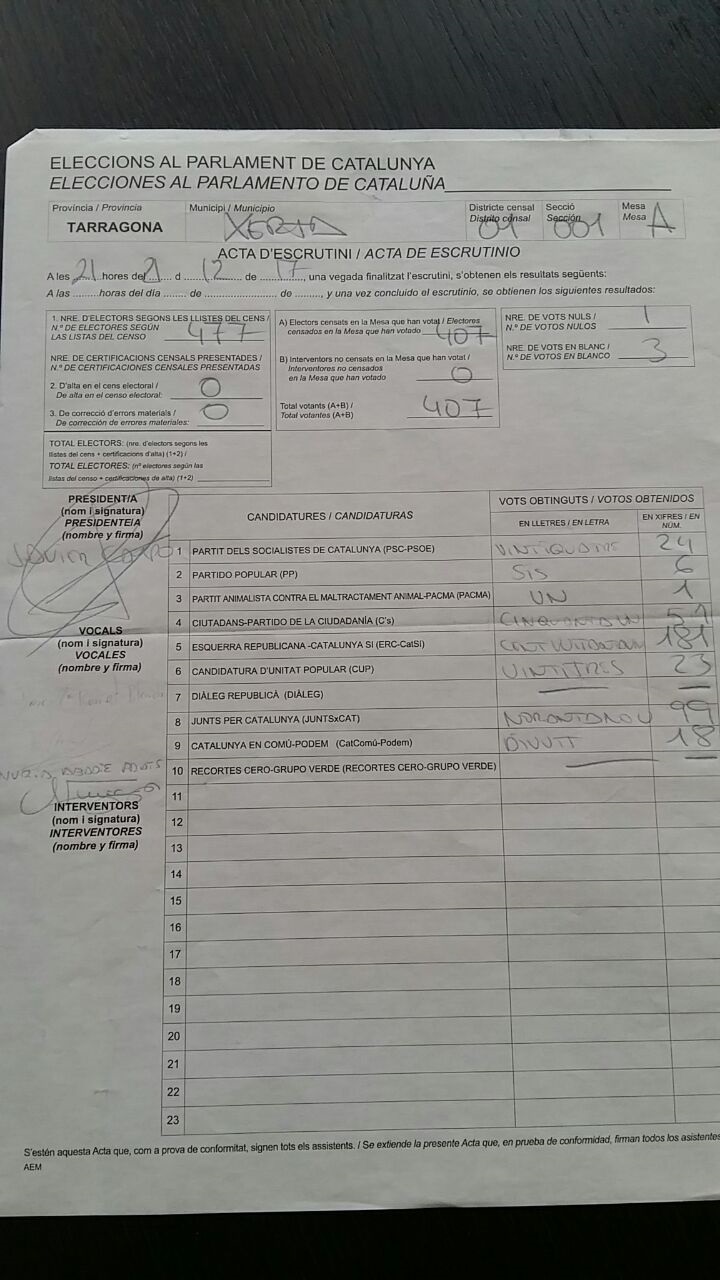 ELECCIONS AL PARLAMENT DE CATALUNYA
ELECCIONES AL PARLAMENTO DE CATALUÑA
Província / Provincia Municipi / Municipio Districte censal Secció Mesa
Distrito censal Sección Mesa
TARRAGONA XERTA 01 001 A
ACTA D'ESCRUTINI / ACTA DE ESCRUTINIO
A les 21 hores del 21 d 12 de 17, una vegada finalitzat l'escrutini, s'obtenen els resultats següents:
A las ........ horas del día ....... de .................... de ........, y una vez concluido el escrutinio, se obtienen los siguientes resultados:
1. NRE. D'ELECTORS SEGONS LES LLISTES DEL CENS /
N.º DE ELECTORES SEGÚN
LAS LISTAS DEL CENSO 477
NRE. DE CERTIFICACIONS CENSALS PRESENTADES /
N.º DE CERTIFICACIONES CENSALES PRESENTADAS
2. D'alta en el cens electoral /
De alta en el censo electoral: 0
3. De correcció d'errors materials /
De corrección de errores materiales: 0
TOTAL ELECTORS: (nre. d'electors segons les
llistes del cens + certificacions d'alta) (1+2) /
TOTAL ELECTORES: (nº electores según las
listas del censo + certificaciones de alta) (1+2)
A) Electors censats en la Mesa que han votat / Electores
censados en la Mesa que han votado 407
B) Interventors no censats en la Mesa que han votat /
Interventores no censados
en la Mesa que han votado 0
Total votants (A+B) /
Total votantes (A+B) 407
NRE. DE VOTS NULS /
N.º DE VOTOS NULOS 1
NRE. DE VOTS EN BLANC /
N.º DE VOTOS EN BLANCO 3
PRESIDENT/A
(nom i signatura)
PRESIDENTE/A
(nombre y firma)
JAVIER
VOCALS
(nom i signatura)
VOCALES
(nombre y firma)
INTERVENTORS
(nom i signatura)
INTERVENTORES
(nombre y firma)
CANDIDATURES / CANDIDATURAS VOTS OBTINGUTS / VOTOS OBTENIDOS
EN LLETRES / EN LETRA EN XIFRES / EN NÚM.
1 PARTIT DELS SOCIALISTES DE CATALUNYA (PSC-PSOE) VINTIQUATRE 24
2 PARTIDO POPULAR (PP) SIS 6
3 PARTIT ANIMALISTA CONTRA EL MALTRACTAMENT ANIMAL-PACMA (PACMA) UN 1
4 CIUTADANS-PARTIDO DE LA CIUDADANÍA (C's) CINQUANTAUN 51
5 ESQUERRA REPUBLICANA -CATALUNYA SÍ (ERC-CatSÍ) CENT VUITANTAUN 181
6 CANDIDATURA D'UNITAT POPULAR (CUP) VINTITRES 23
7 DIÀLEG REPUBLICÀ (DIÀLEG)
8 JUNTS PER CATALUNYA (JUNTSxCAT) NORANTANOU 99
9 CATALUNYA EN COMÚ-PODEM (CatComú-Podem) DIVUIT 18
10 RECORTES CERO-GRUPO VERDE (RECORTES CERO-GRUPO VERDE)
11
12
13
14
15
16
17
18
19
20
21
22
23
S'estén aquesta Acta que, com a prova de conformitat, signen tots els assistents. / Se extiende la presente Acta que, en prueba de conformidad, firman todos los asistentes
AEM